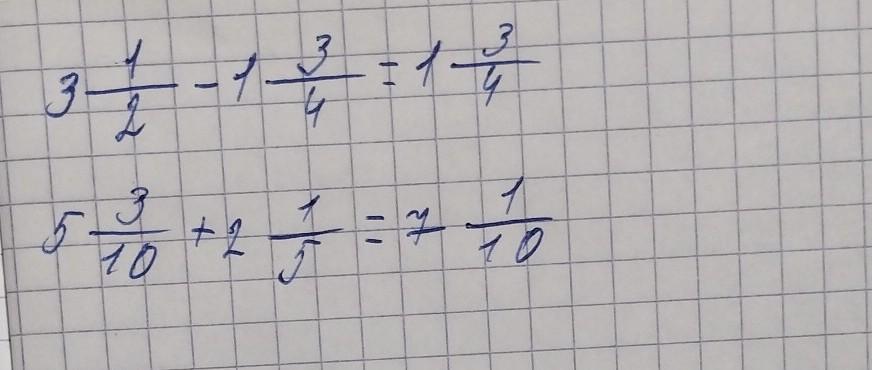 3 1/2 - 1 3/4 = 1 3/4
5 3/10 + 2 1/5 = 7 1/10